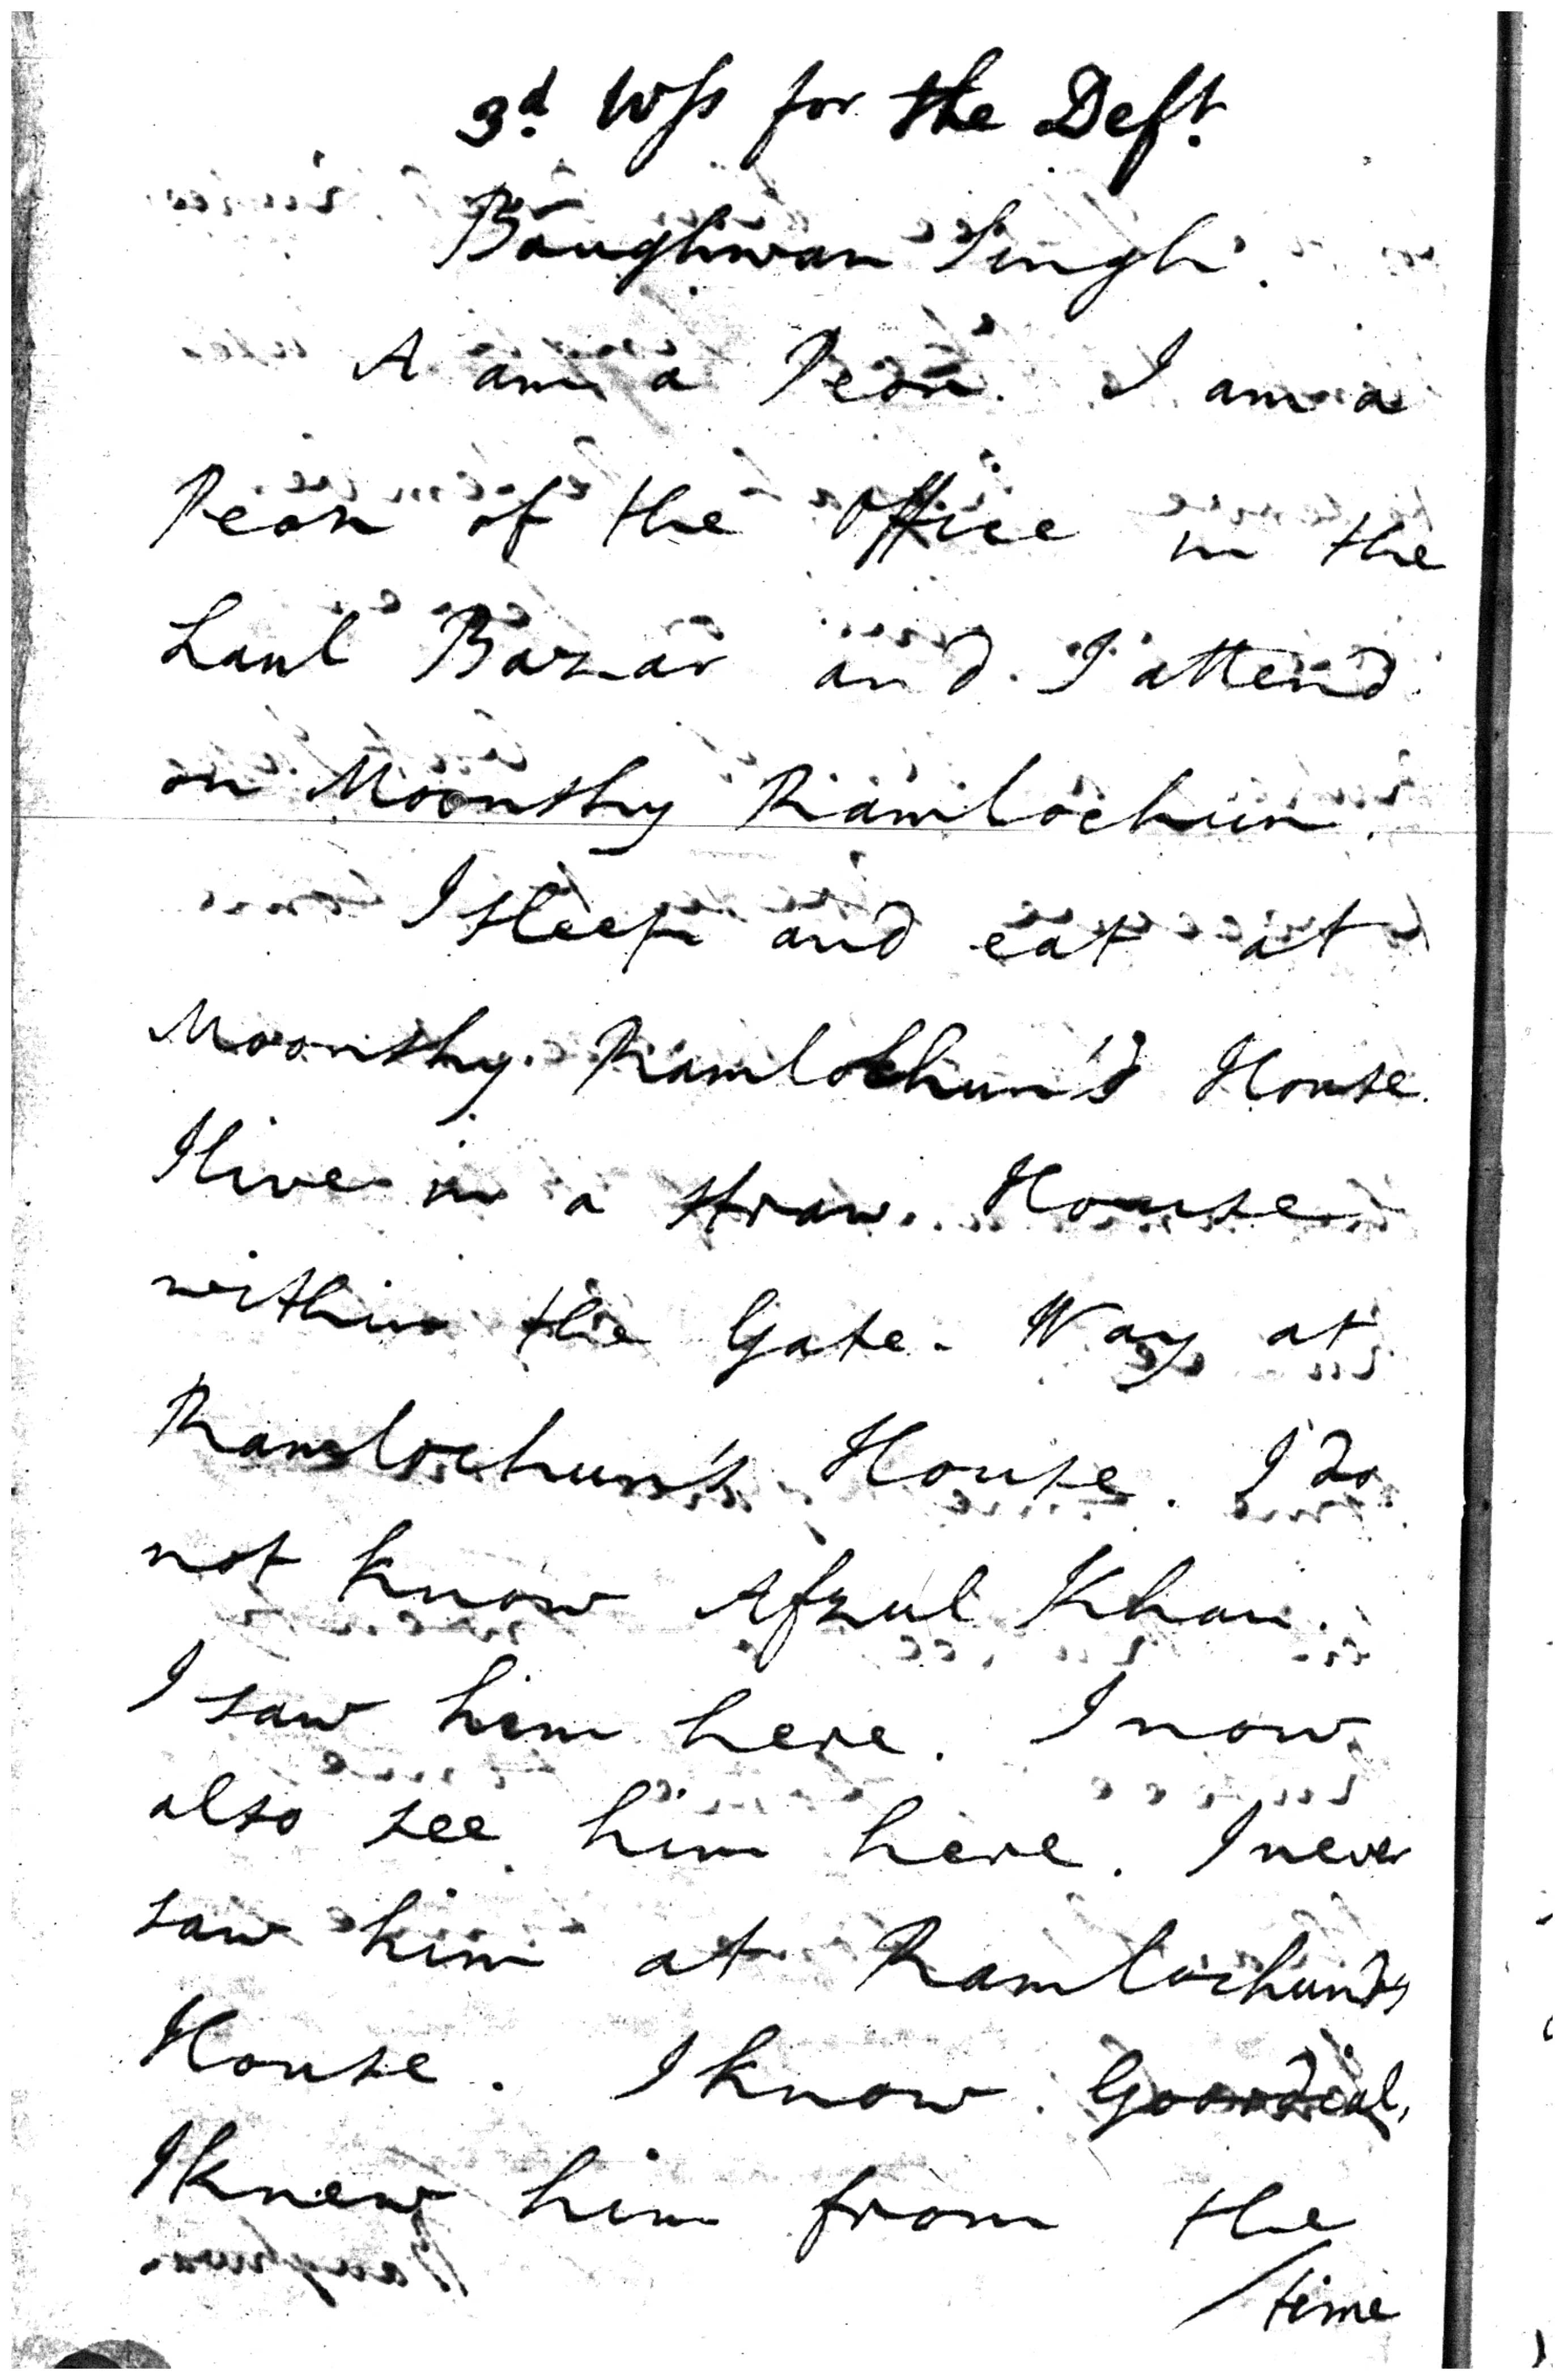 3d. Wss for the Deft.
Baughwan Singh.
A am a Peon. I am a
Peon of the Office in the
Laul Bazar and I attend
on Moonshy Ramlochun.
I sleep and eat at
Moonshy Ramlochun's House.
I live in a straw House
within the Gate-Way at
Ramlochun's House. I do
not know Afzul Khan.
I saw him here. I now
also see him here. I never
saw him at Ramlochun's
House. I know Goordial,
I knew him from the
/time